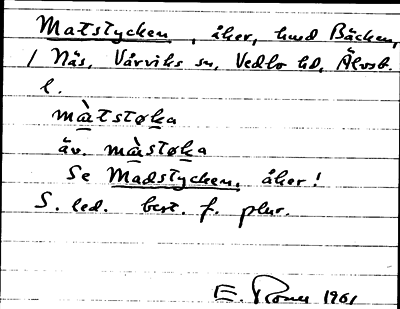 Matstycken, åker, hmd Bäcken,
/ Näs, Vårviks sn, Vedbo hd, Älvsb.
l.
màtstøka
äv. màstøka
Se Madstycken, åker!
S. led. best. f. plur.
E. 1961